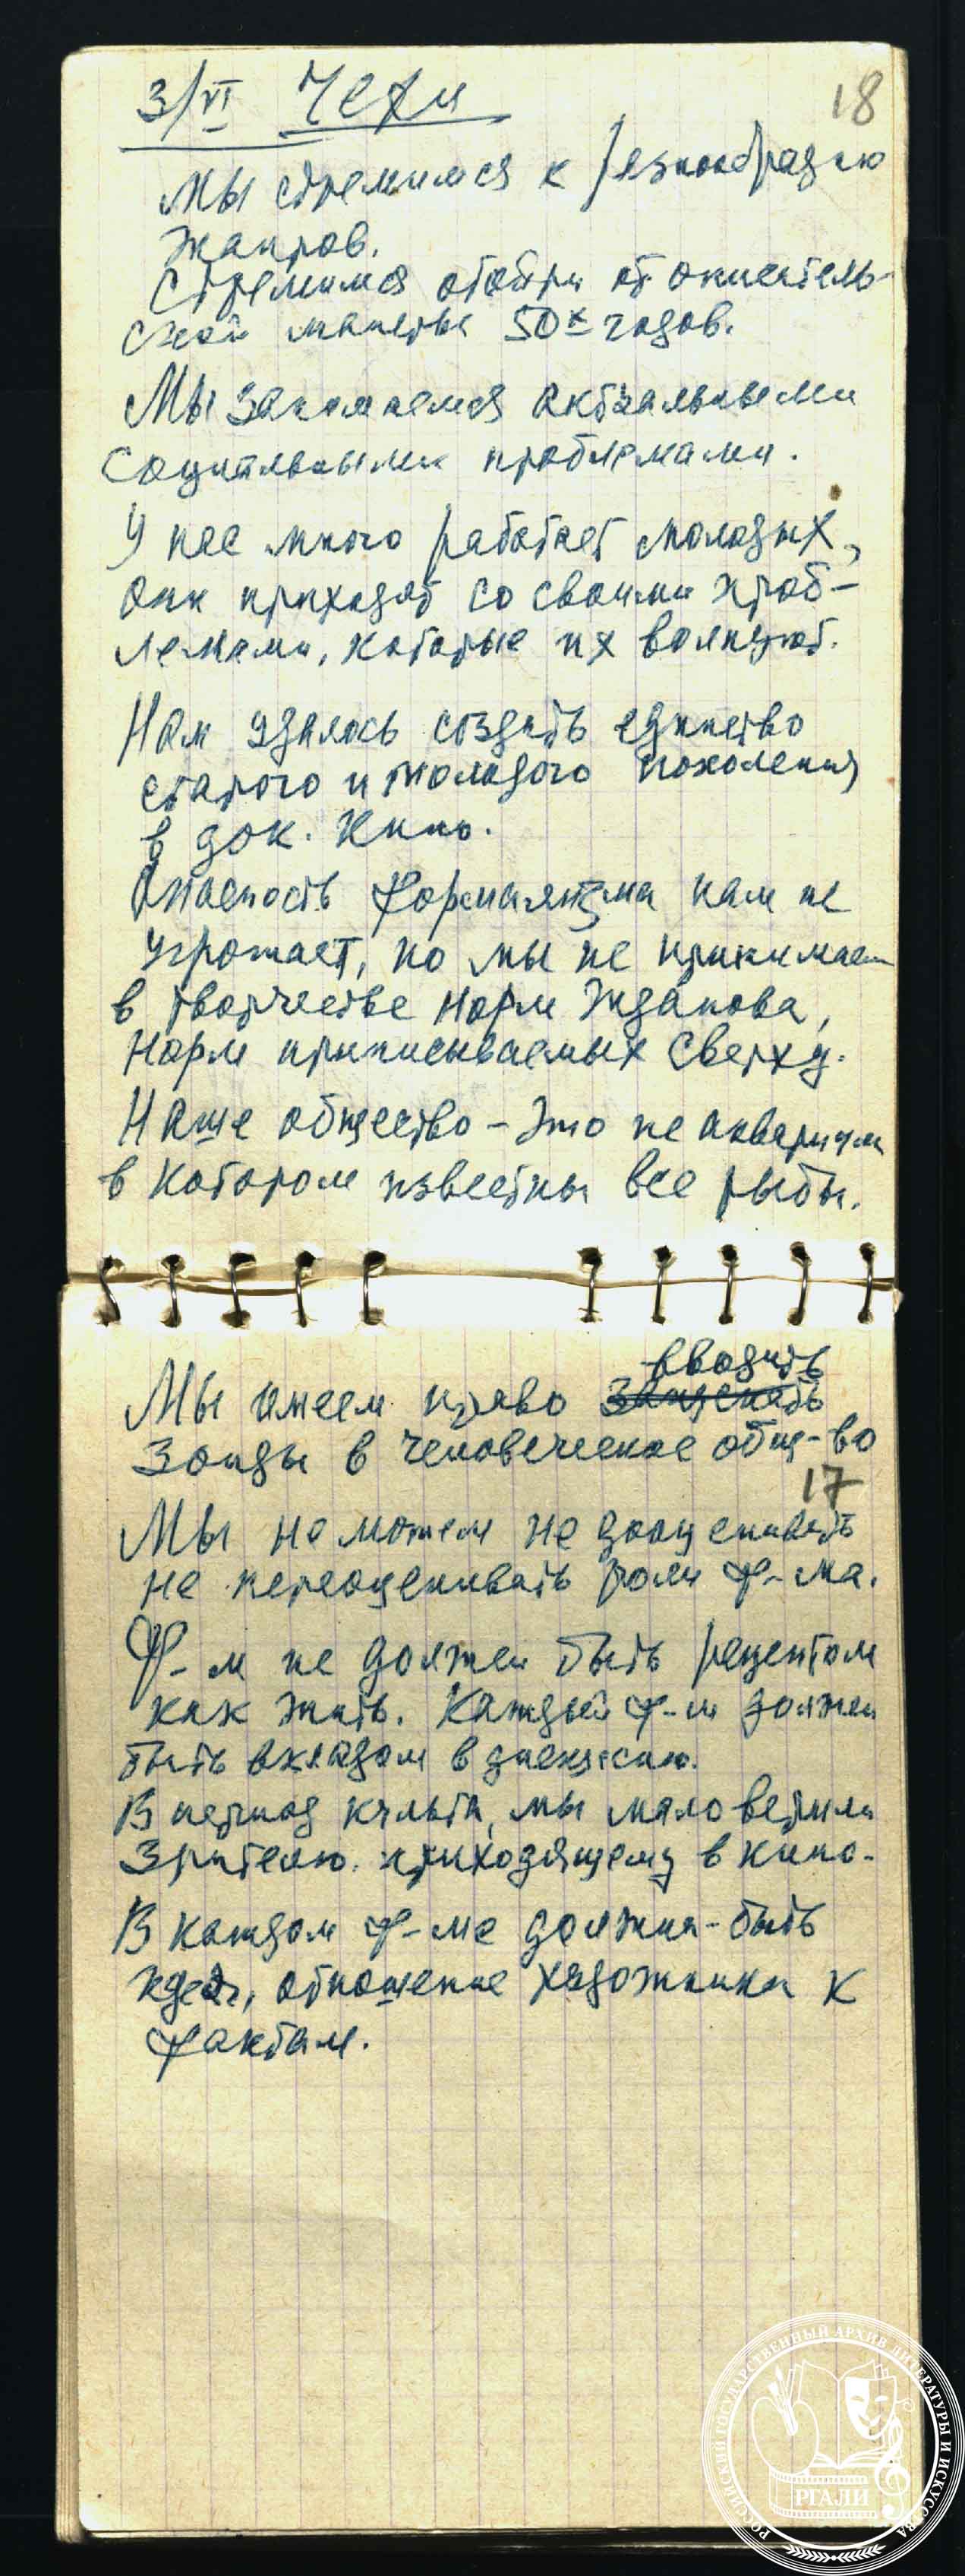 3/VI Чехи
18
Мы стремимся к разнообразию
жанров.
Стремимся отойти от описатель-
ской манеры 50х годов.
Мы занимаемся актуальными
социальными проблемами.
У нас много работает молодых,
они приходят со своими проб-
лемами, которые их волнуют.
Нам удалось создать единство
старого и молодого поколения
в док. кино.
Опасность формализма нам не
угрожает, но мы не принимаем
в творчестве норм Жданова,
норм приписываемых сверху.
Наше общество - это не аквариум
в котором известны все рыбы.
вводить
Мы имеем право запускать
зонды в человеческое общ-во
17
Мы не можем не дооценивать
не переоценивать роли ф-ма.
Ф-м не должен быть рецептом
как жить. Каждый ф-м должен
быть вкладом в дискуссию.
В период культа, мы мало верили
зрителю приходящему в кино.
В каждом ф-ме должна быть
идея, отношение художника к
фактам.
РОССИЙСКИЙ ГОСУДАРСТВЕННЫЙ АРХИВ ЛИТЕРАТУРЫ И ИСКУССТВА
РГАЛИ